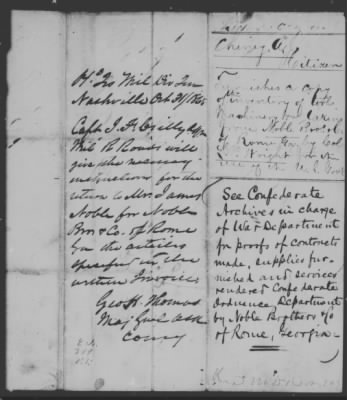 Hd Qrs Mil Div Ten
Nashville Oct 31/1865
Capt J. F.
Mil R Roads will
give the necessary
instructions for the
return to Mrs. James
Noble for Noble
Bro & Co. of Rome
Ga the articles
specified in the
written Invoice
Geo H. Thomas
Maj Genl USA
Comg
Cheney, A
Citizen
Furnishes a copy
of inventory of tools
Machinery &
from Noble Bros & Co
of Rome Ga by Col
Wright for the
use of the U.S. Govt
See Confederate
Archives in charge
of War Department
for proofs of contracts
made, supplies fur-
nished and services
rendered Confederate
Ordnance Department
by Noble Brothers & Co
of Rome, Georgia